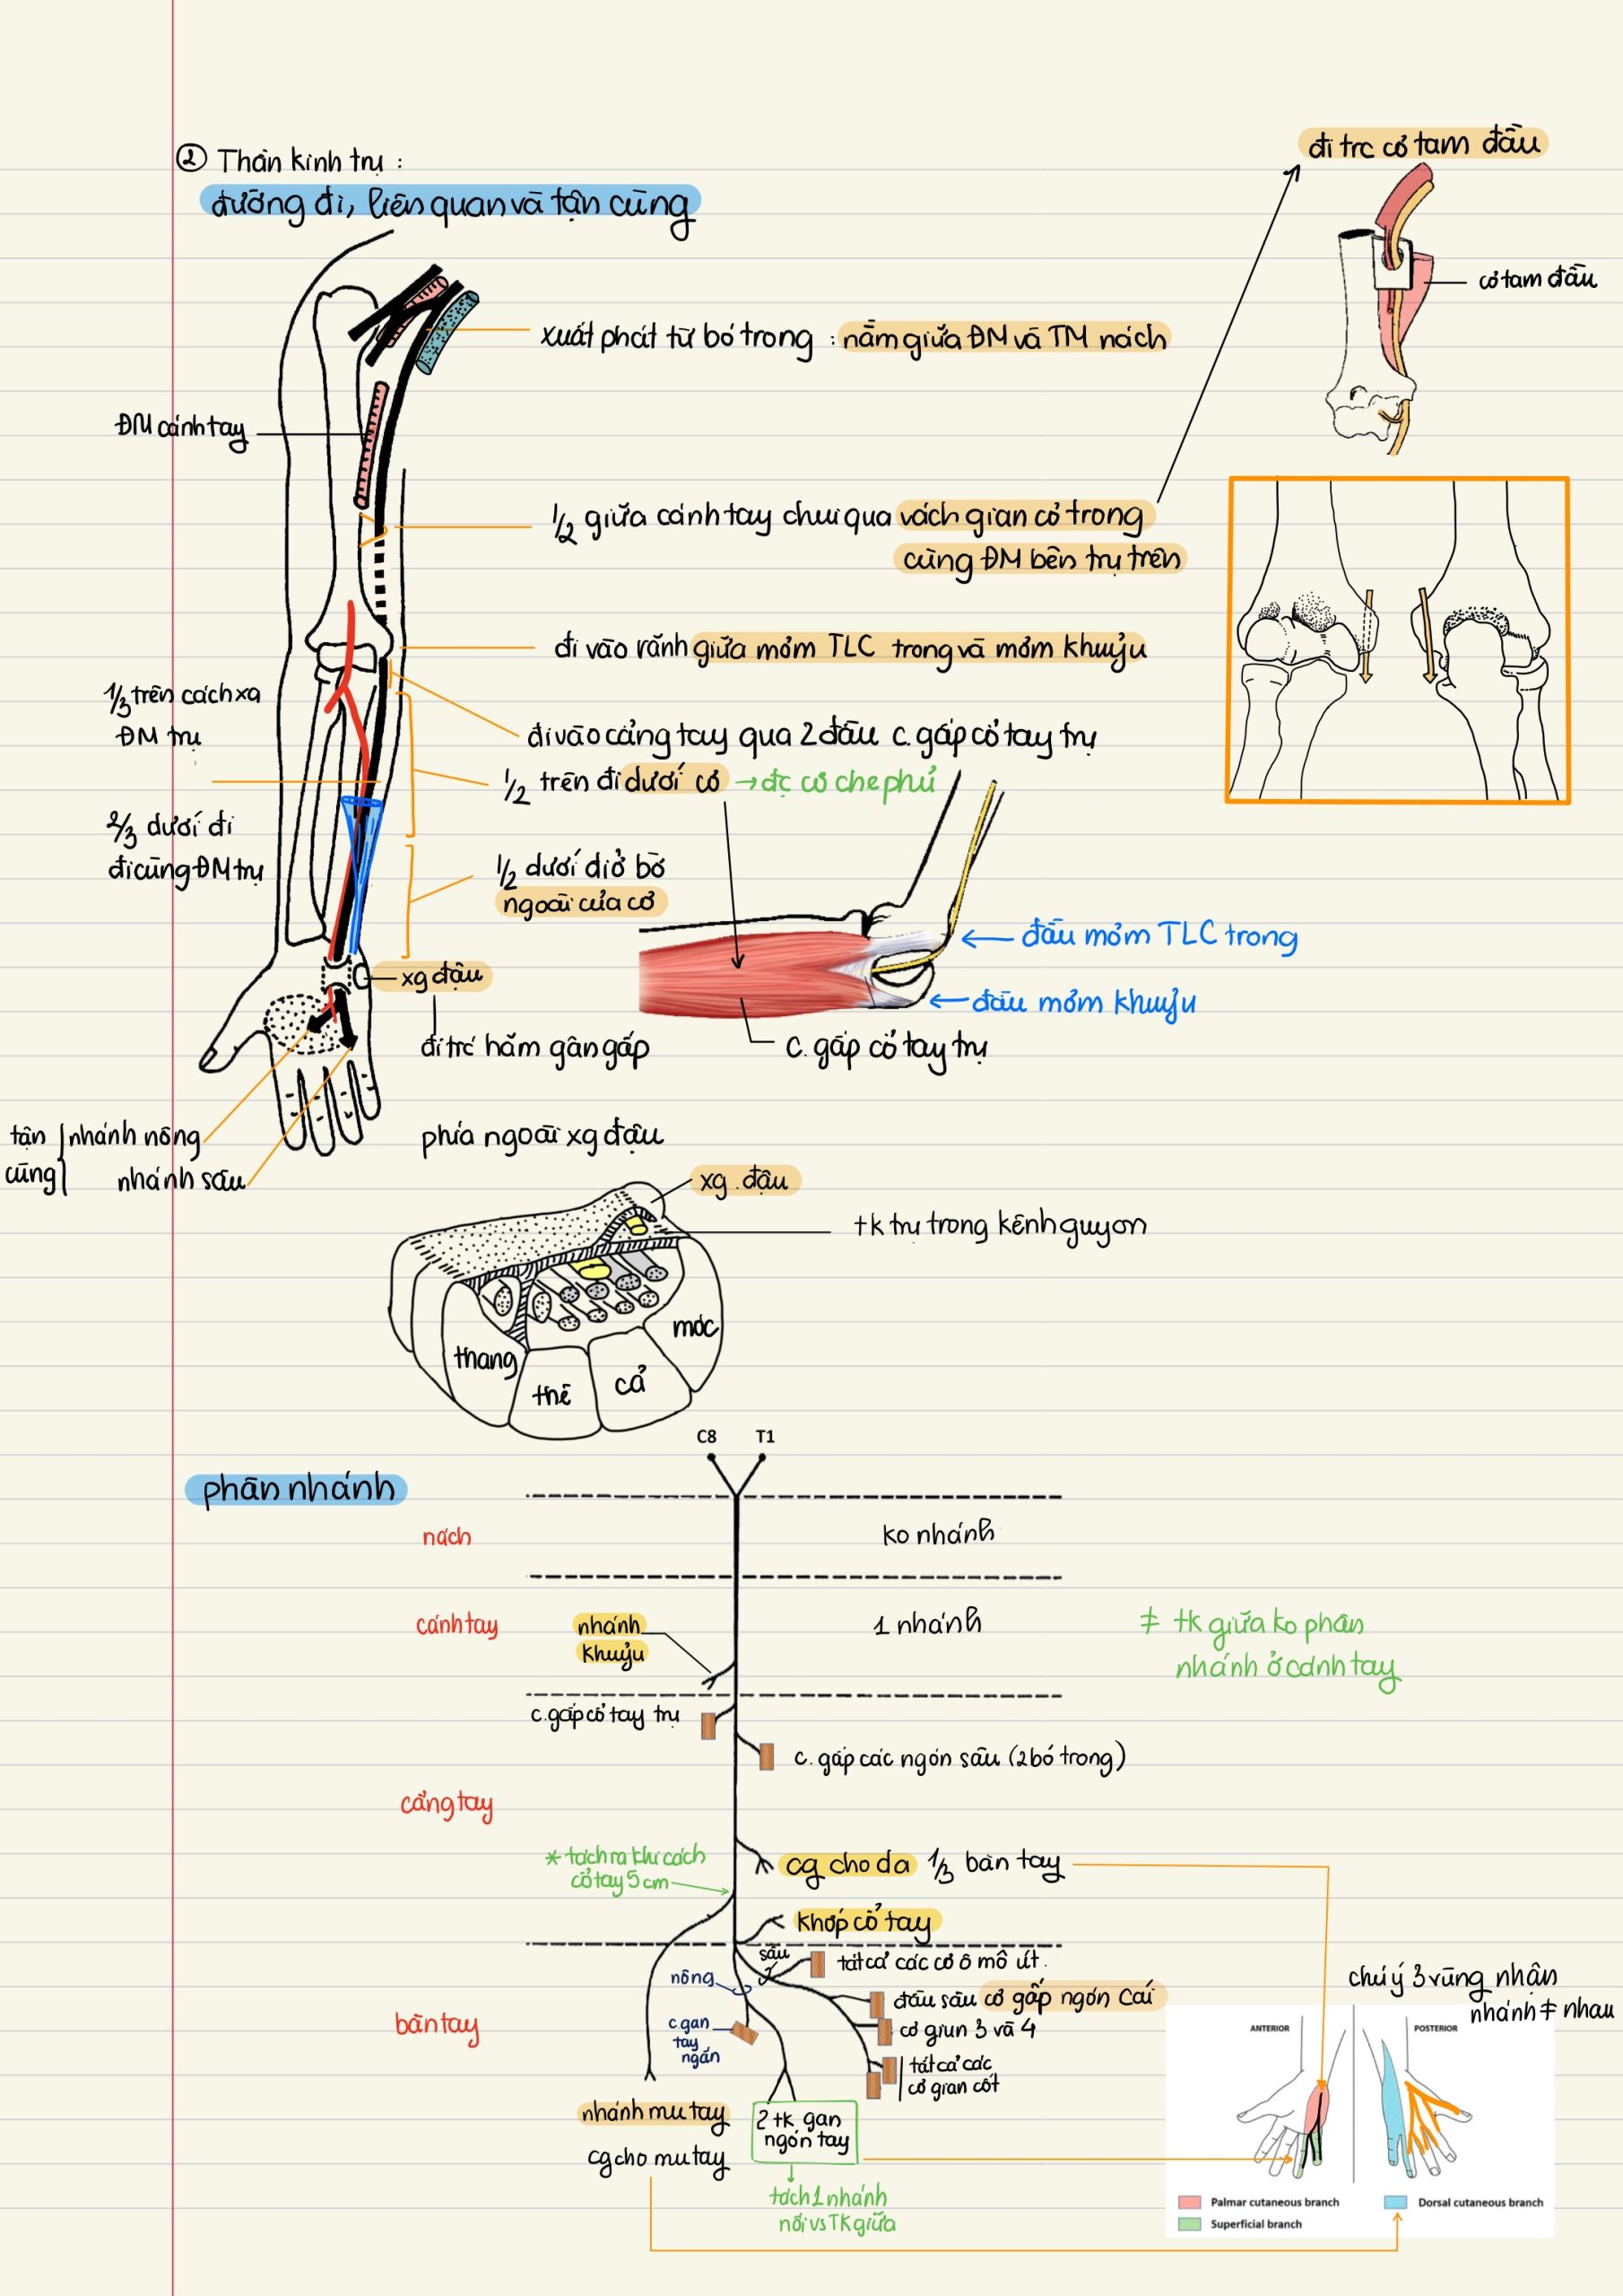 ② Thần kinh trụ :
đường đi, liên quan và tận cùng
đi trc cơ tam đầu
cơ tam đầu
xuất phát từ bó trong : nằm giữa ĐM và TM nách
ĐM cánh tay
1/2 giữa cánh tay chui qua vách gian cơ trong
cùng ĐM bên trụ trên
đi vào rãnh giữa mỏm TLC trong và mỏm khuỷu
1/3 trên cách xa
ĐM trụ
đi vào cẳng tay qua 2 đầu c. gấp cổ tay trụ
1/2 trên đi dưới cơ → đc cơ che phủ
2/3 dưới đi
đi cùng ĐM trụ
1/2 dưới đi ở bờ
ngoài của cơ
đầu mỏm TLC trong
đầu mỏm khuỷu
c. gấp cổ tay trụ
xg đậu
đi trc hãm gân gấp
phía ngoài xg đậu
tận
cùng
nhánh nông
nhánh sâu
xg. đậu
tk trụ trong kênh guyon
thang
thê
cả
móc
C8 T1
phân nhánh
nách
ko nhánh
cánh tay
nhánh
khuỷu
1 nhánh
≠ tk giữa ko phân
nhánh ở cánh tay
c. gấp cổ tay trụ
c. gấp các ngón sâu (2 bó trong)
cẳng tay
* tách ra khi cách
cổ tay 5 cm
cg cho da 1/3 bàn tay
khớp cổ tay
sâu
tất cả các cơ ô mô út.
nông
đầu sâu cơ gấp ngón cái
cơ giun 3 và 4
bàn tay
c. gan
tay
ngắn
tất cả các
cơ gian cốt
nhánh mu tay
cg cho mu tay
2 tk gan
ngón tay
tách 1 nhánh
nối vs TK giữa
chú ý 3 vùng nhận
nhánh ≠ nhau
ANTERIOR
POSTERIOR
Palmar cutaneous branch
Dorsal cutaneous branch
Superficial branch